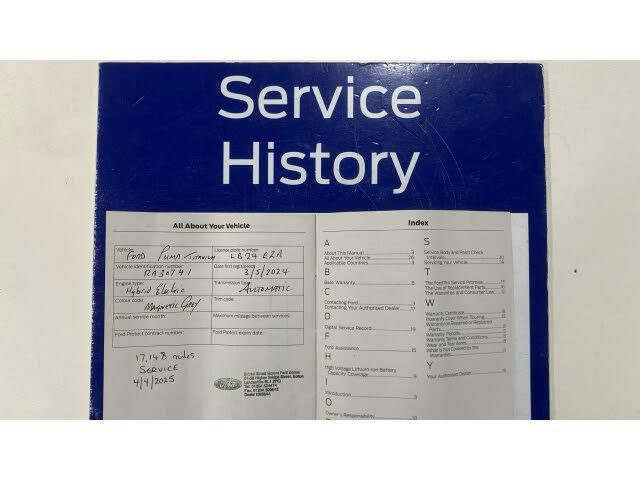 Service
History
All About Your Vehicle
Vehicle: FORD PUMA TITANIUM
Licence plate number: LB24 EZA
Vehicle identification number: RA30741
Date first registered: 3/5/2024
Engine type: Hybrid Electric
Transmission type: AUTOMATIC
Colour code: MAGNETIC GREY
Trim code:
Annual service month:
Maximum mileage between services:
Ford Protect contract number:
Ford Protect expiry date:
17,148 miles
SERVICE
4/4/2025
Bristol Street Motors Ford Bolton
Index
A
About This Manual 3
All About Your Vehicle 26
Applicable Countries 3
B
Base Warranty 8
C
Contacting Ford 3
Contacting Your Authorised Dealer 17
D
Digital Service Record 19
F
Ford Assistance 15
H
High Voltage Lithium-Ion Battery
Capacity Coverage 9
I
Introduction 3
O
Owner's Responsibility 10
S
Service Body and Paint Check
Intervals 20
Servicing Your Vehicle
T
The Ford Pro Service Promise
The Use of Replacement Parts
The Warranties and Consumer Law
W
Warranty Certificate
Warranty Cover When Touring
Warranty on Repaired or Replaced
Parts
Warranty Periods
Warranty Terms and Conditions
Wear and Tear Items
What is Not Covered by the
Warranties
Y
Your Authorised Dealer